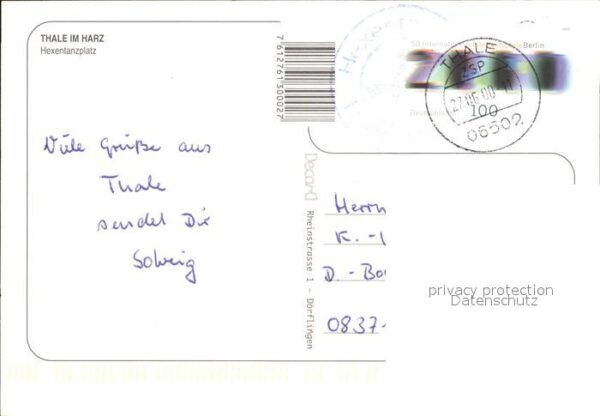 THALE IM HARZ
Hexentanzplatz
Viele Grüße aus
Thale
sendet Dir
Solveig
7612761300027
Decard
Rheinstrasse 1 - Dörflingen
50 Internationale
Berlin
Deutschland
THALE
ZSP
22.06.00
100
06502
Herrn
K. -
D. - Bo
0837-
privacy protection
Datenschutz